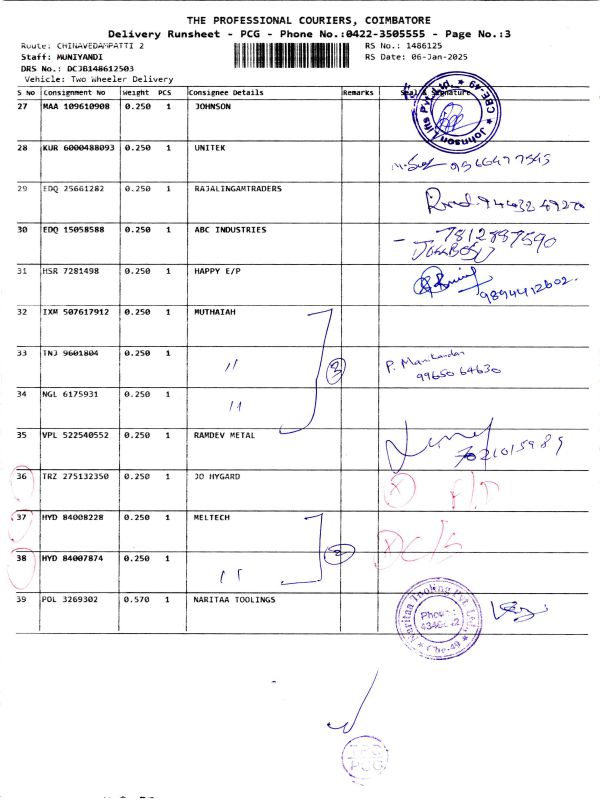 THE PROFESSIONAL COURIERS, COIMBATORE
Delivery Runsheet - PCG - Phone No.:0422-3505555 - Page No.:3
Route: CHINAVEDAMPATTI 2 RS No.: 1486125
Staff: MUNIYANDI RS Date: 06-Jan-2025
DRS No.: DCJB148612503
Vehicle: Two Wheeler Delivery
S No Consignment No Weight PCS Consignee Details Remarks Seal & Signature
27 MAA 109610908 0.250 1 JOHNSON
Johnson Lifts Pvt. Ltd. ★ CBE-49 ★
28 KUR 6000488093 0.250 1 UNITEK
29 EDQ 25661282 0.250 1 RAJALINGAMTRADERS
30 EDQ 15058588 0.250 1 ABC INDUSTRIES 7812887590
31 HSR 7281498 0.250 1 HAPPY E/P
9894412602
32 IXM 507617912 0.250 1 MUTHAIAH
33 TNJ 9601804 0.250 1 " 3 P. Manikandan
99650 64630
34 NGL 6175931 0.250 1 "
35 VPL 522540552 0.250 1 RAMDEV METAL
7021015989
36 TRZ 275132350 0.250 1 JO HYGARD X P/D
37 HYD 84008228 0.250 1 MELTECH
X C/S
38 HYD 84007874 0.250 1 " 2
39 POL 3269302 0.570 1 NARITAA TOOLINGS
Naritaa Tooling Pvt. Ltd. ★ Cbe-49 ★
PCG